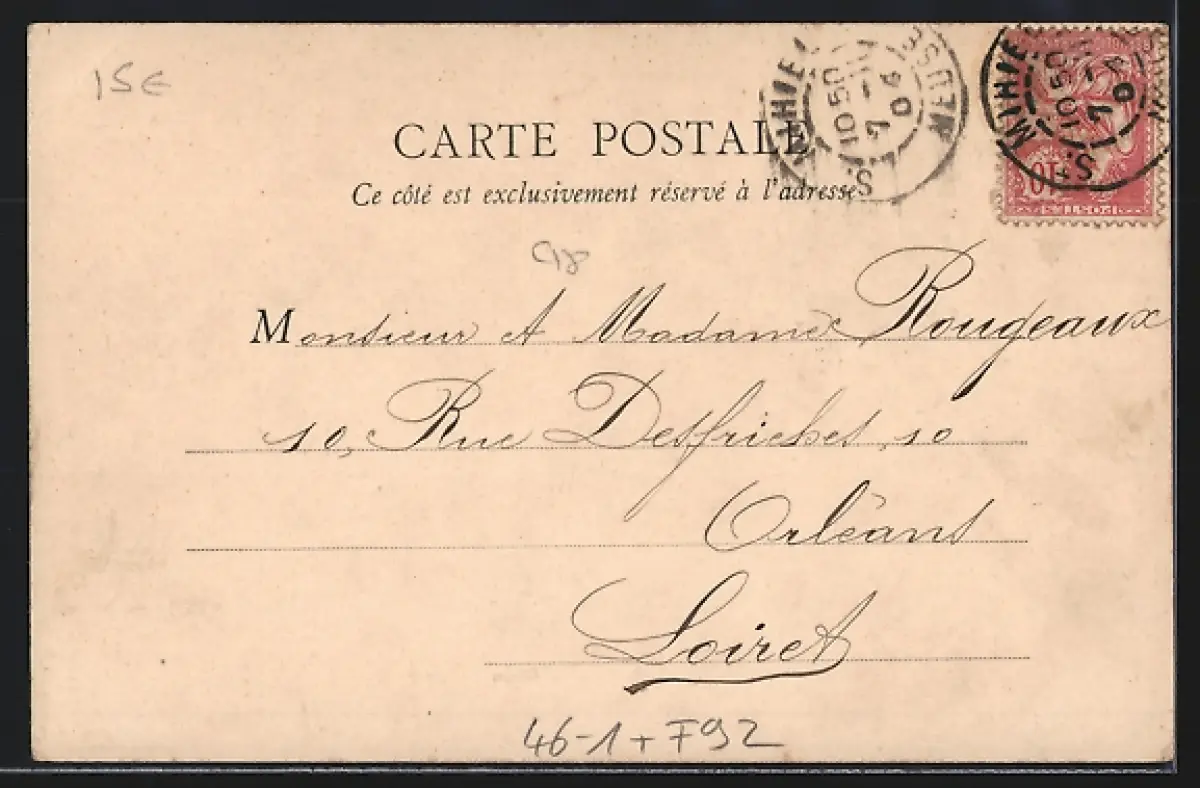 15€
CARTE POSTALE
Ce côté est exclusivement réservé à l'adresse
ST MIHIEL MEUSE
10 50
7 - 1
04
ST MIHIEL
10 50
7 - 1
04
10
POSTES
98
Monsieur et Madame Rougeaux
10, Rue Desfriches, 10
Orléans
Loiret
46-1+F92